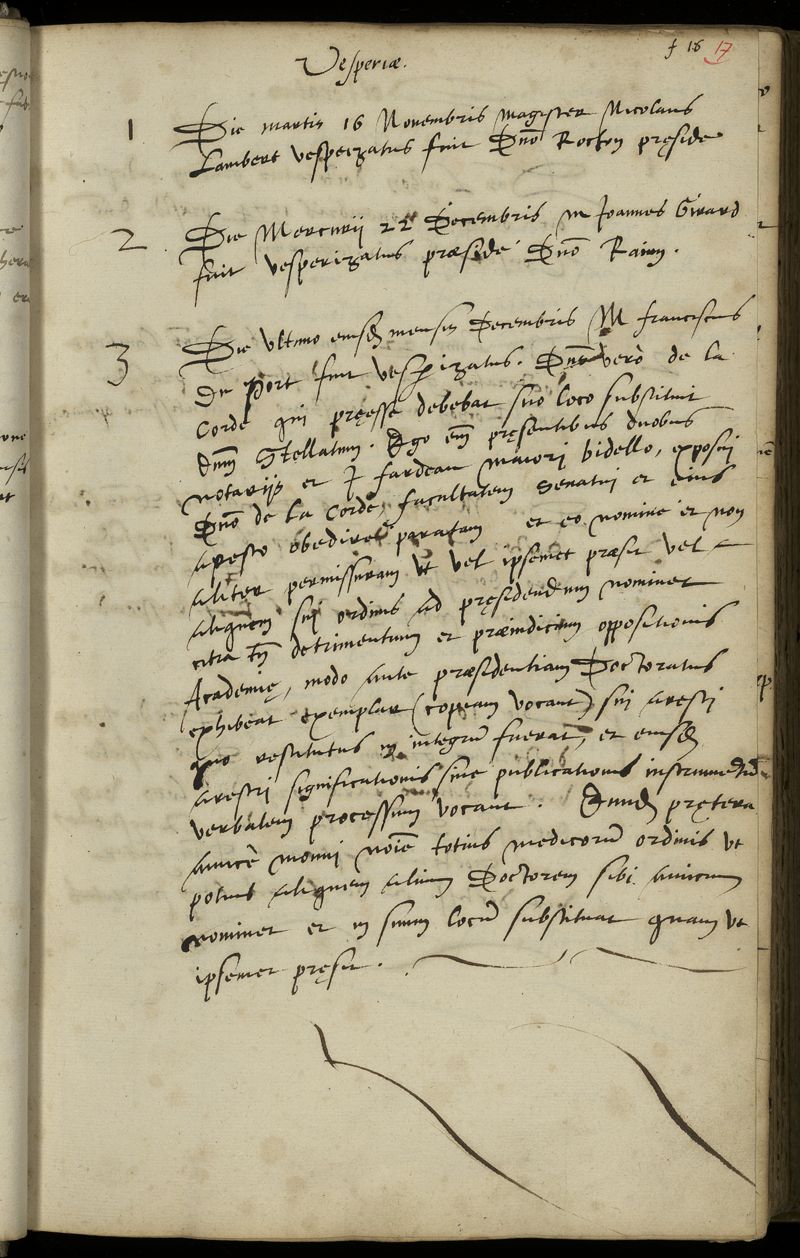 f 16 17
Vesperiæ.
1 Die martis 16 Novembris magister Nicolaus
Lambert vesperizatus fuit Dn̄o Rochon pręside
2 Die Mercurij 22 Decembris M Joannes Girard
fuit vesperizatus præside Dn̄o Rainy.
3 Die ultimo eiusdē mensis Decembris M franciscus
Du Port fuit vesperizatus. Dn̄us verò de la
Corde qui pręesse debebat suo loco substituit
Dn̄m Stellatum. Ego em̄ pręsentibus duobus
notarijs et J fardeau maiori bidello, exposui
Dn̄o de la Corde, facultatem Senatui et eius
aresto obedire paratam et eo nomine et non
aliter permissuram ut vel ipsemet præsit vel
aliquem sui ordinis ad pręsidendum nominet
citra tn̄ detrimentum et præiudicium oppositionis
Academię, modo ante præsidentiam Doctoratus
exhibeat exemplar (copeam vocant) sui aresti
quo restitutus in integrū fuerat, et eiusdē
aresti significationis sive publicationis instrumentū
verbalem processum vocant. Eundē pręterea
amicè monui noīe totius medicorū ordinis ut
potius aliquem alium Doctorem sibi amicum
nominet et in suum locū substituat quam ut
ipsemet pręsit.